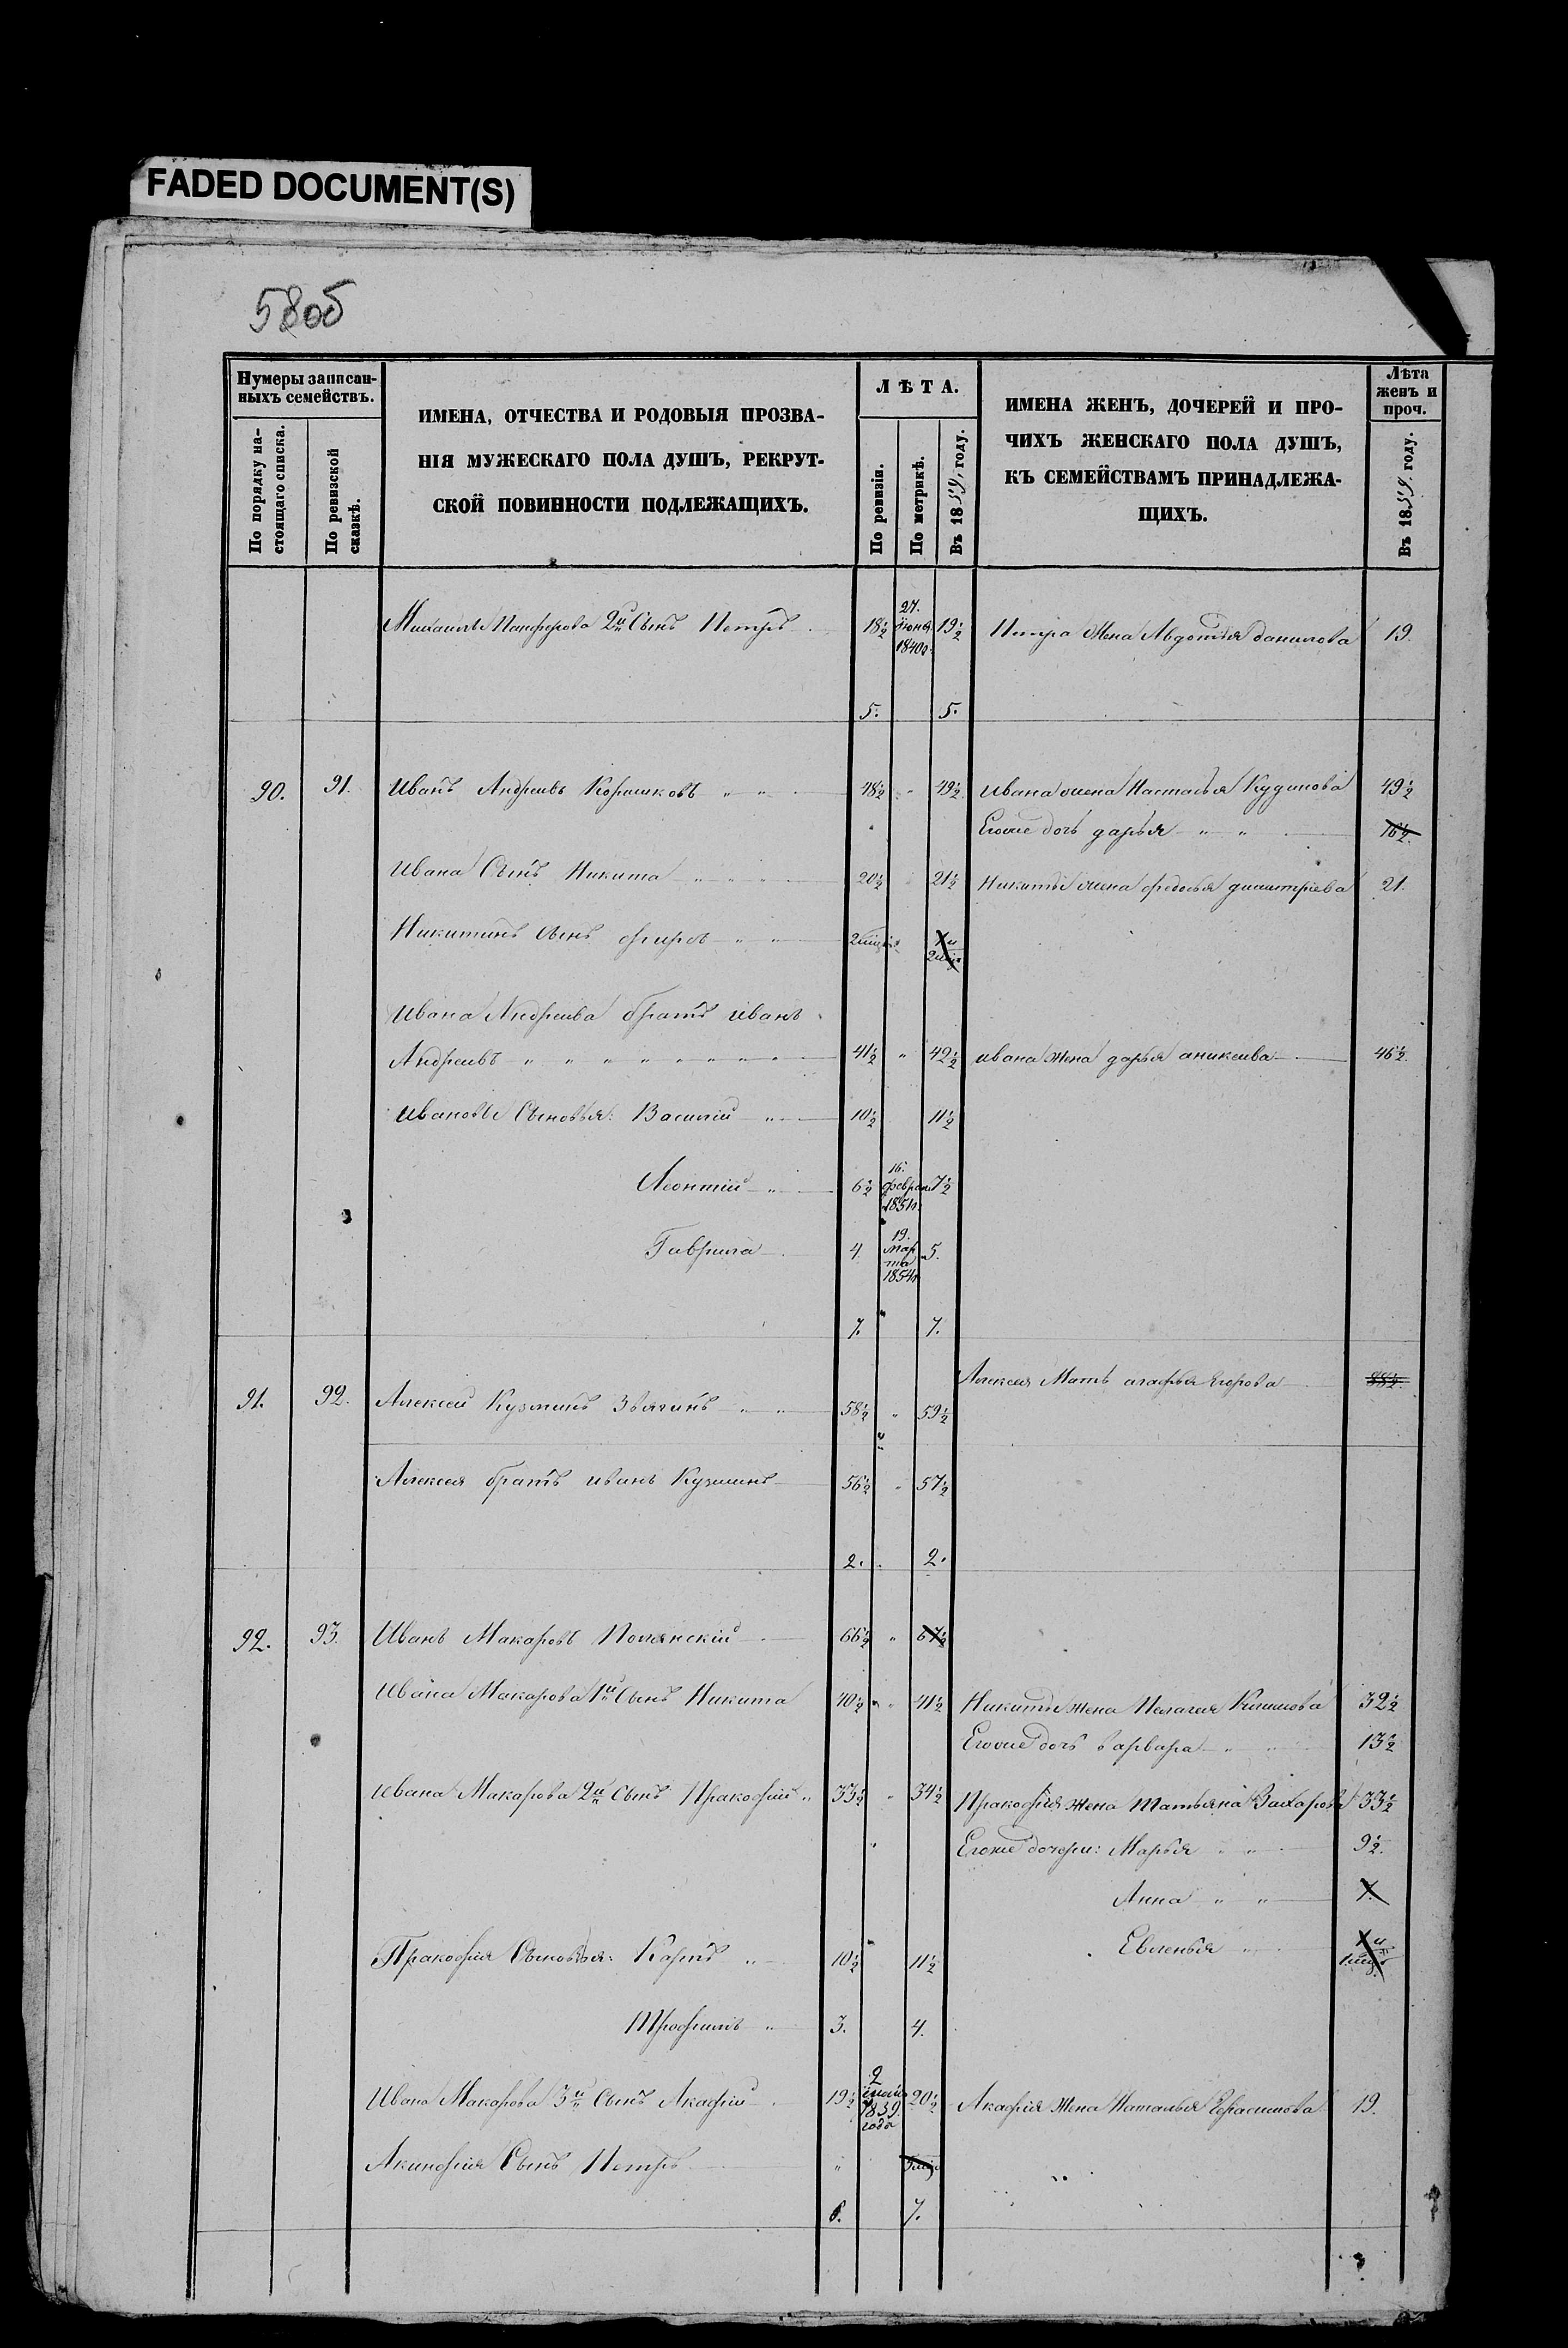 FADED DOCUMENT(S)
58об
Нумеры записан-
ныхъ семействъ.
По порядку на-
стоящаго списка.
По ревизской
сказкѣ.
ИМЕНА, ОТЧЕСТВА И РОДОВЫЯ ПРОЗВА-
НІЯ МУЖЕСКАГО ПОЛА ДУШЪ, РЕКРУТ-
СКОЙ ПОВИННОСТИ ПОДЛЕЖАЩИХЪ.
ЛѢТА.
По ревизіи.
По метрикѣ.
Въ 1859, году.
ИМЕНА ЖЕНЪ, ДОЧЕРЕЙ И ПРО-
ЧИХЪ ЖЕНСКАГО ПОЛА ДУШЪ,
КЪ СЕМЕЙСТВАМЪ ПРИНАДЛЕЖА-
ЩИХЪ.
Лѣта
женъ и
проч.
Въ 1859, году.
Михаилы Панферова 2й Сынъ Петръ 18½ 27. Июня 1840г. 19½ Петра Жена Авдотья данилова 19.
5. 5.
90. 91. Иванъ Андреевъ Коришковъ " " 48½ " 49½ ивана жена Настасья Кудинова 49½
Егоже дочь дарья " " 16½.
Ивана Сынъ Никита " " " 20½ 21½ Никиты жена федосья дмитріева 21.
Никитинъ сынъ " "
Ивана Андреева братъ иванъ
Андреевъ " " " " " " " " 41½ " 42½ ивана жена дарья аникеева 46½.
Ивановы Сыновья: Василий " 10½ 11½
Леонтий " 6½ 16. феврал 1851г. 7½
Гаврила 4. 19. мар та 1854г. 5.
7. " 7.
Алексея Мать агафья Егорова 88½.
91. 92. Алексей Кузминъ Звягинъ " " 58½ " 59½
Алексея братъ иванъ Кузминъ 56½ " 57½
2. 2.
92. 93. Иванъ Макаровъ Полянский 66½ " 67½
Ивана Макарова 1й Сынъ Никита 40½ " 41½ Никиты жена Пелагия 32½
Егоже дочь варвара " 13½
Ивана Макарова 2й Сынъ Пракофий " 33½ " 34½ Пракофия жена Татьяна Захарова 33½
Егоже дочери: Марья " " 9½.
Анна " " 7.
Пракофия Сыновья: Карпъ " 10½ 11½ Евленья "
Трофимъ " 3. 4.
Ивана Макарова 3й Сынъ Акафий 19½ 2 1839 года 20½ Акафия жена Наталья Герасимова 19.
Акинфия Сынъ Петръ "
6. 7.